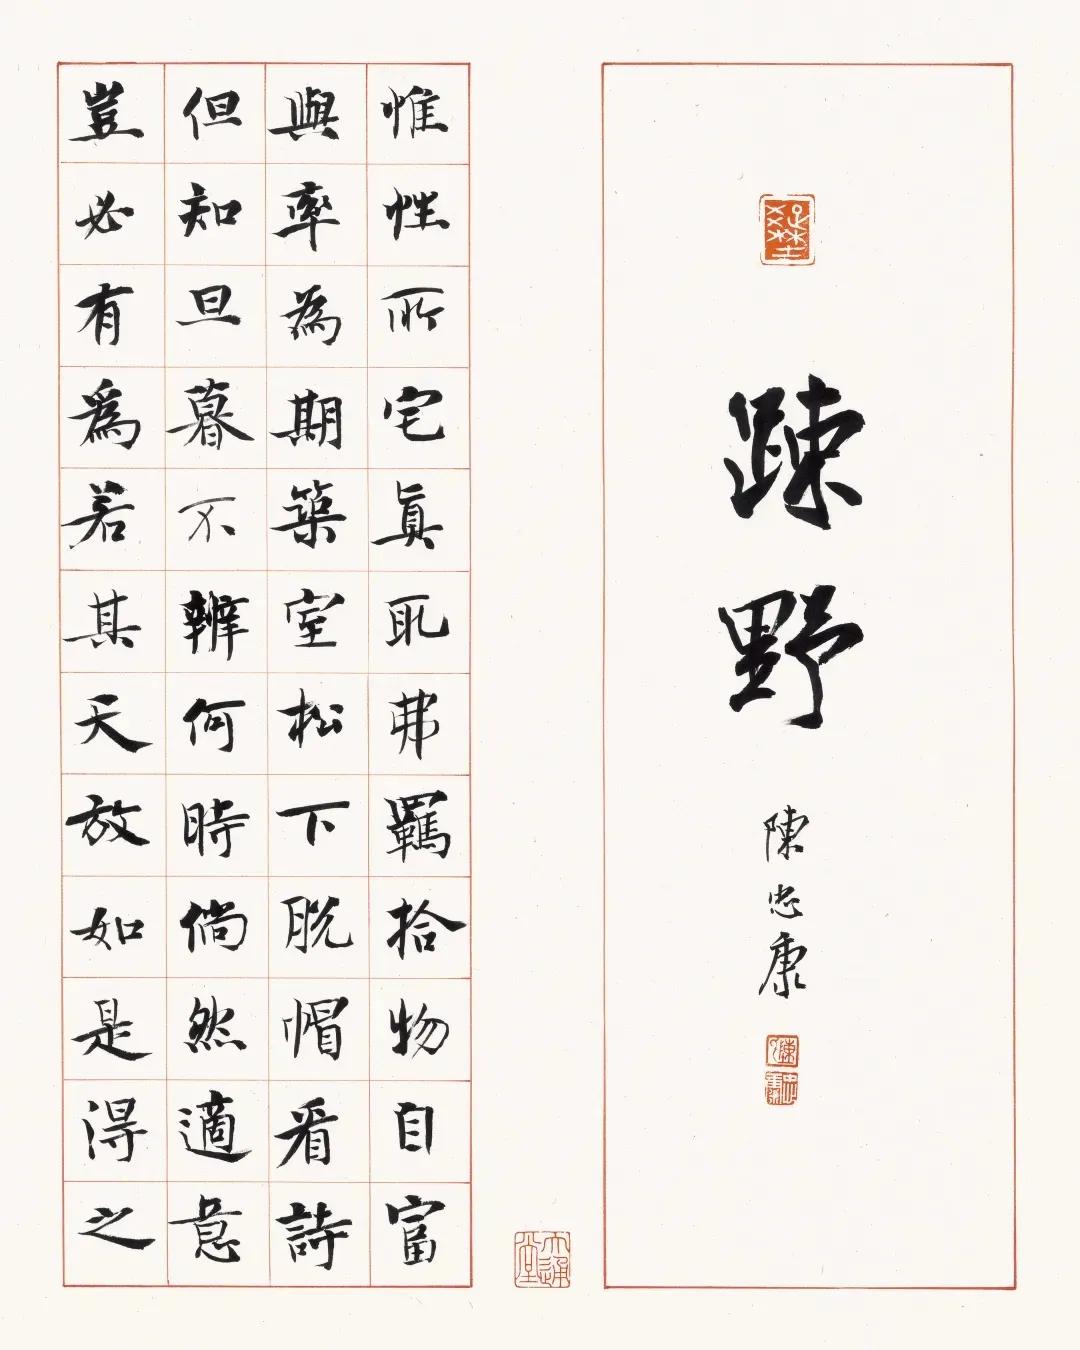 踈野
陳忠康
惟性所宅眞取弗羈拾物自富
與率為期築室松下脫帽看詩
但知旦暮不辨何時倘然適意
豈必有爲若其天放如是得之